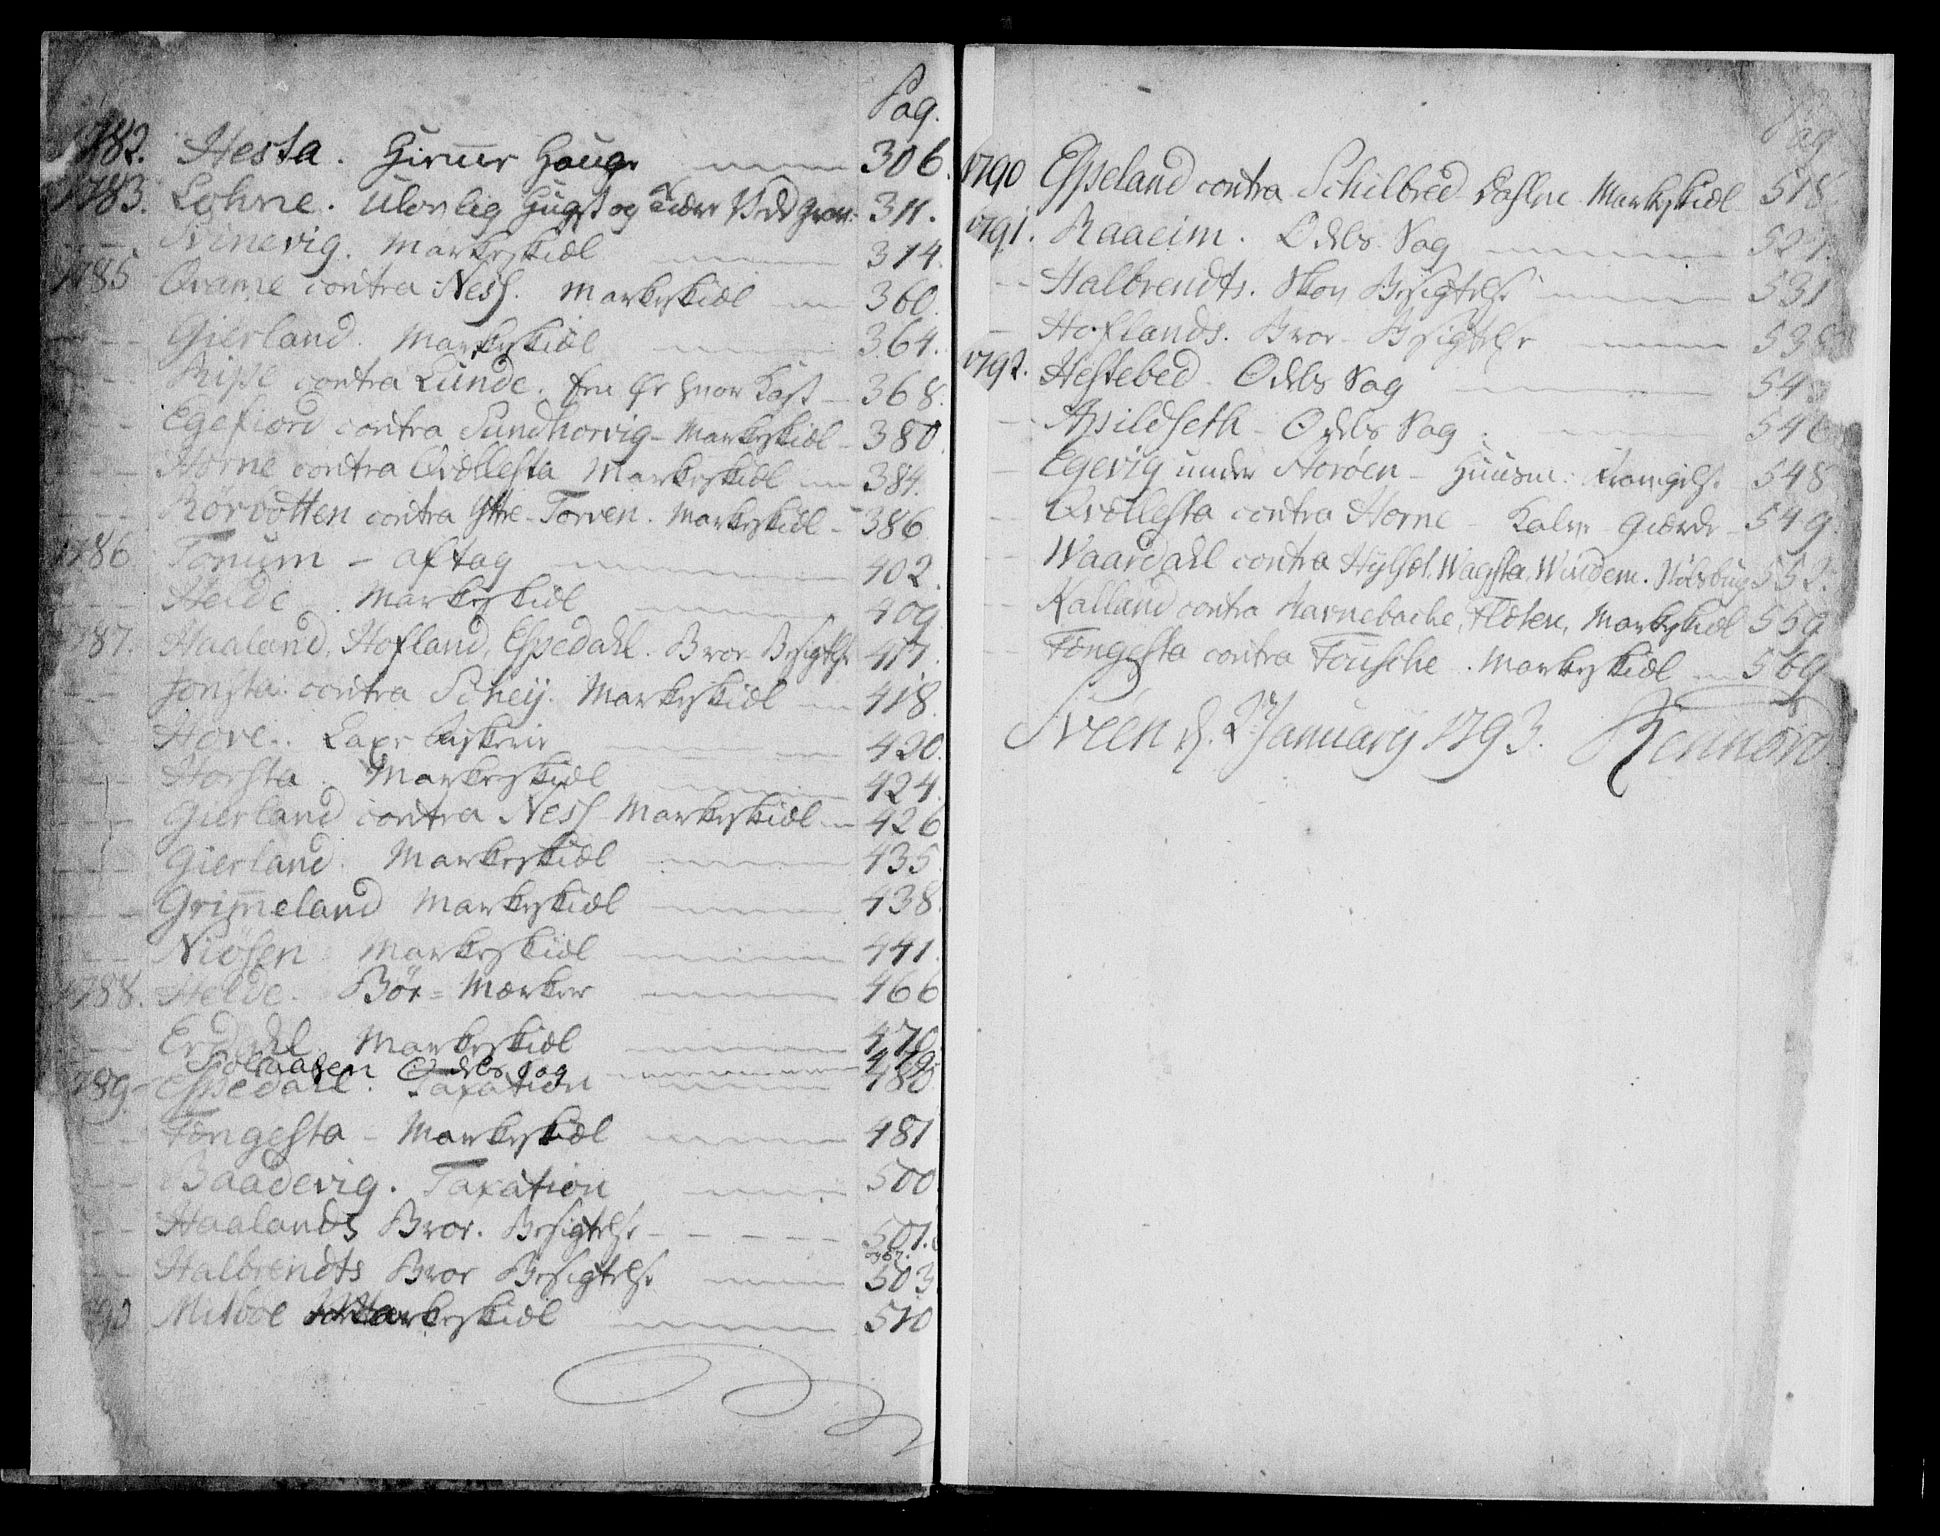 Pag.
1782. Hesta. Hiemer Hauge 306.
1783. Lohne. Ulovlig Hugst og 311.
Svinevig. Markeskiæl 314.
1785 Qvame contra Ness. Markeskiæl 360.
Gierland. Markeskiæl 364.
Ripe contra Lunde. 368.
Egefiord contra Sundhorvig - Markeskiæl - 380
Horne contra Qvællesta Markeskiæl 384.
Rörvotten contra Yttre-Torven. Markeskiæl - 386
1786 Tonum - aftag 402.
Heide. Markeskiæl 409
1787. Haaland, Hofland, Espedahl. Broe Besigtelse 417.
Jonsta. contra Scheij. Markeskiæl 418.
Hove. Laxe fiskerie 420.
Horsta. Markeskiæl 424.
Gierland contra Ness - Markeskiæl 426
Gierland. Markeskiæl 435
Grim̄eland Markeskiæl 438.
Niösen Markeskiæl 441.
1788. Helde. Böx = Mærker 466
Erdahl Markeskiæl 470
Solaasen Odels Sag 479
1789. Espedahl. Taxation 480
Tengesta - Markeskiæl 481
Baadevig. Taxation 500
Haalands Broe. Besigtelse - 501.
Halbrendts Broe Besigtelse 503
Mitboe Markeskiæl 510
Pag
1790 Espeland contra Schilbred Markeskiæl 518.
1791. Raaeim. Odels Sag 527.
Halbrendts. Skov Besigtelse 531
Hoflands. Broe - Besigtelse 538
1792. Hestebed. Odels Sag 543
Apildseth - Odels Sag 546
Egevig under Storöen - Huusm: 548
Qvællesta contra Horne Kalve Giærde - 549.
Waardahl contra Wagsta, 552.
Kalland contra Markeskiæl 559
Tengesta contra Tousche. Markeskiæl 569
Sveen d. 2. January 1793. Rennord